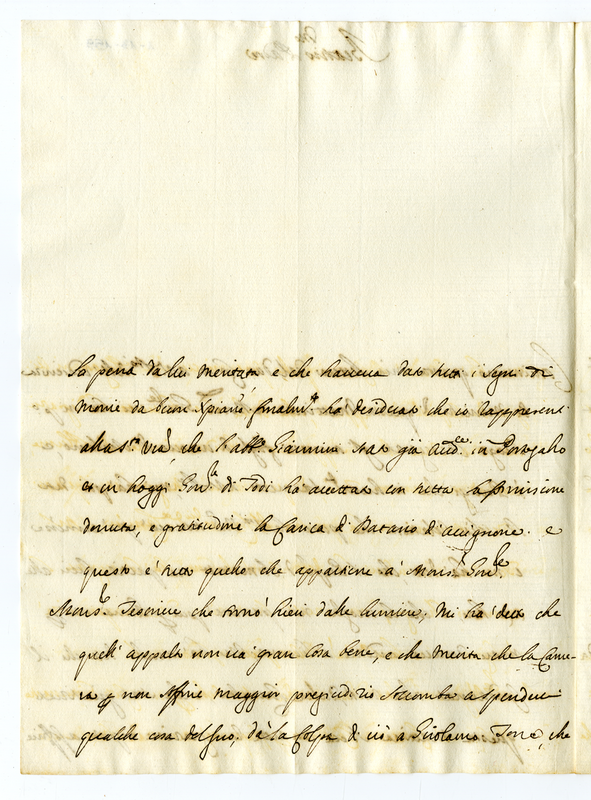 la pena da lui meritata e che haveva dati tutti i segni di
morire da buon Xpiano. finalm.te ha desiderato che io rappresenti
alla S.ra V.ra che l'abb.e Giannini stato già Aud.re in Portogallo
et in hoggi Gov.re di Todi ha accettato con tutta la sommissione
dovuta, e gratitudine la Carica di Datario d'Avignone. e
questo è tutto quello che appartiene a Mons.r Gov.re
Mons.r Tesoriere che tornò hieri dalle lumiere, mi ha detto che
quell' appalto non và gran cosa bene, e che merita che la Came-
ra p non soffrire maggior pregiudizio soccomba a spendere
qualche cosa del suo, dà la Colpa di ciò a Girolamo che